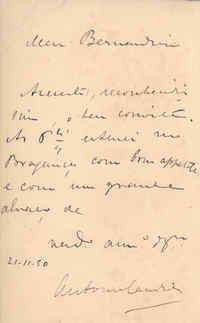 Meu Bernardino
Aceito, reconhecido
sim, o teu convite.
Ás 6 estarei no
Bragança com bom appetite
e com um grande
abraço de
21-11-50